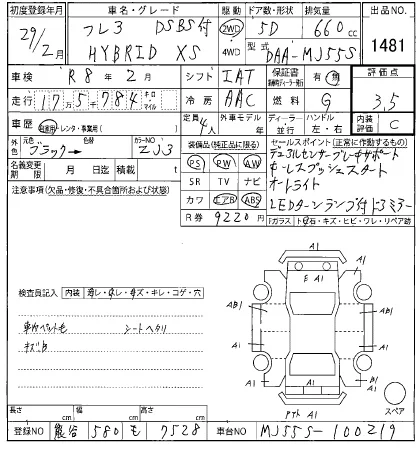 初度登録年月 車名・グレード 駆動 ドア数・形状 排気量 出品NO.
29/2月 フレ3 DSBS付 2WD 5D 660cc 1481
HYBRID XS 4WD 型式 DAA-MJ55S
車検 R8年2月 シフト IAT 保証書 有・無 評価点
走行 175784 キロ マイル 冷房 AAC 燃料 G 3.5
車歴 自家用・レンタ・事業用( ) 定員 4人 外車モデル年 ディーラー 並行 ハンドル 左・右 内装評価 C
外色 元色 ブラック→ 色替 カラーNO ZJ3
装備品(純正品に限る) セールスポイント(正常に作動するもの)
名義変更期限 月 日迄 積載 t
PS PW AW デュアルセンサーブレーキサポート
キーレスプッシュスタート
SR TV ナビ オートライト
注意事項(欠品・修復・不具合箇所および状態)
カワ エアB ABS LEDターンランプ付ドアミラー
R券 9220円 ガラス トビ石・キズ・ヒビ・ワレ・リペア跡
A1
E A1
検査員記入 内装 汚レ・スレ・キズ・キレ・コゲ・穴
AB1 A1 AB1
車内ペット毛 シートヘタリ
キズ
A1 A1
A1
スペア
A1
長さ cm 幅 cm 高さ cm
登録NO 熊谷 580 も 7528 車台NO MJ55S-100219